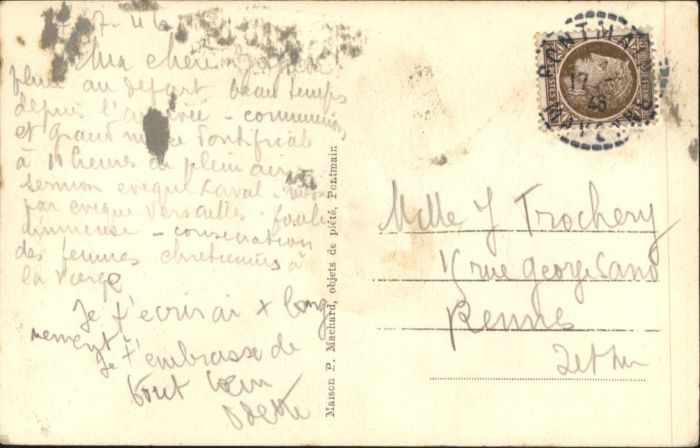 Ma chère
pluie au départ beau temps
depuis l'arrivée - communions
et grand messe Pontificale
à 11 heures en plein air
sermon evêque Laval -
par evêque Versailles - foule
immense - consecration
des femmes chretiennes à
la Vierge
Je t'ecrirai + long
nement
Je t'embrasse de
tout coeur
Odette
Maison P. Machard, objets de piété, Pontmain
PONTMAIN
17
46
MAYENNE
POSTES
Melle J Trochery
rue George Sand
Rennes